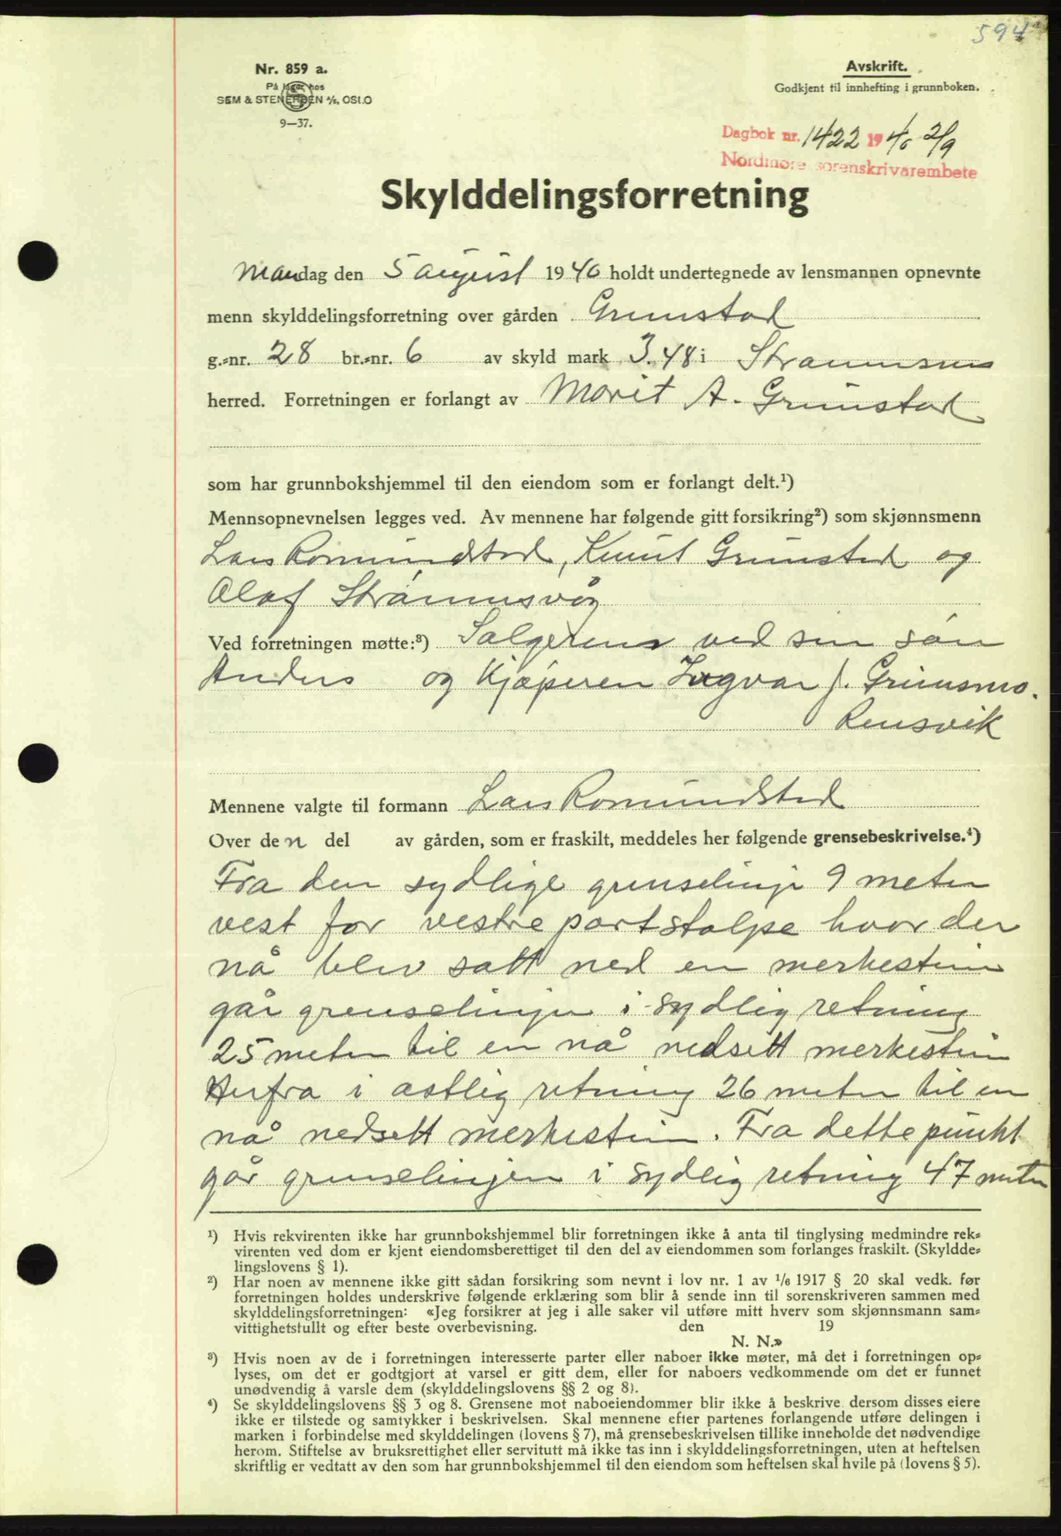 594
Nr. 859 a.
På lager hos
SEM & STENERSEN A/S, OSLO
9—37.
Avskrift.
Godkjent til innhefting i grunnboken.
Dagbok nr. 1422 1940 2/9
Nordmøre sorenskrivarembete
Skylddelingsforretning
Mandag den 5 august 1940 holdt undertegnede av lensmannen opnevnte
menn skylddelingsforretning over gården Grimstad
g.-nr. 28 br.-nr. 6 av skyld mark 3.48 i Straumsnes
herred. Forretningen er forlangt av Marit A. Grimstad
som har grunnbokshjemmel til den eiendom som er forlangt delt.¹)
Mennsopnevnelsen legges ved. Av mennene har følgende gitt forsikring²) som skjønnsmenn
Lars Romundstad, Knut Grimstad og
Olaf Straumsvåg
Ved forretningen møtte:³) Selgeren ved sin sön
Anders og Kjøperen Ingvar J. Grimsmo.
Rensvik
Mennene valgte til formann Lars Romundstad
Over den del av gården, som er fraskilt, meddeles her følgende grensebeskrivelse.⁴)
Fra den sydlige grenselinje 9 meter
vest for vestre portstolpe hvor der
nå blev satt ned en merkestein
går grenselinjen i sydlig retning
25 meter til en nå nedsett merkestein
Herfra i østlig retning 26 meter til en
nå nedsett merkestein. Fra dette punkt
går grenselinjen i sydlig retning 47 meter
¹) Hvis rekvirenten ikke har grunnbokshjemmel blir forretningen ikke å anta til tinglysing medmindre rek-
virenten ved dom er kjent eiendomsberettiget til den del av eiendommen som forlanges fraskilt. (Skyldde-
lingslovens § 1).
²) Har noen av mennene ikke gitt sådan forsikring som nevnt i lov nr. 1 av 1/6 1917 § 20 skal vedk. før
forretningen holdes underskrive følgende erklæring som blir å sende inn til sorenskriveren sammen med
skylddelingsforretningen: «Jeg forsikrer at jeg i alle saker vil utføre mitt hverv som skjønnsmann sam-
vittighetsfullt og efter beste overbevisning. den 19
N. N.»
³) Hvis noen av de i forretningen interesserte parter eller naboer ikke møter, må det i forretningen op-
lyses, om det er godtgjort at varsel er gitt dem, eller for naboers vedkommende om det er funnet
unødvendig å varsle dem (skylddelingslovens §§ 2 og 8).
⁴) Se skylddelingslovens §§ 3 og 8. Grensene mot naboeiendommer blir ikke å beskrive dersom disses eiere
ikke er tilstede og samtykker i beskrivelsen. Skal mennene efter partenes forlangende utføre delingen i
marken i forbindelse med skylddelingen (lovens § 7), må grensebeskrivelsen tillike inneholde det nødvendige
herom. Stiftelse av bruksrettighet eller servitutt må ikke tas inn i skylddelingsforretningen, uten at heftelsen
skriftlig er vedtatt av den som har grunnbokshjemmel til den eiendom som heftelsen skal hvile på (lovens § 5).